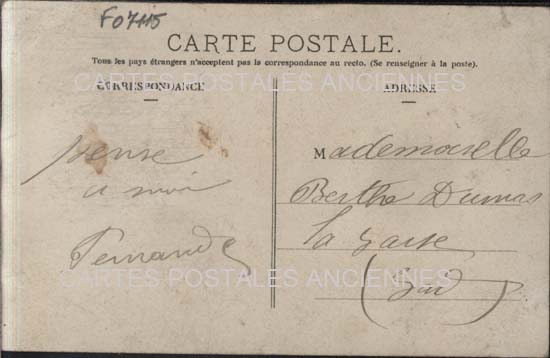 F07115
CARTE POSTALE.
Tous les pays étrangers n'acceptent pas la correspondance au recto. (Se renseigner à la poste).
CARTES POSTALES ANCIENNES
CORRESPONDANCE
ADRESSE
pense
a moi
Fernande
Mademoiselle
Berthe Dumas
la
(Gard)
CARTES POSTALES ANCIENNES